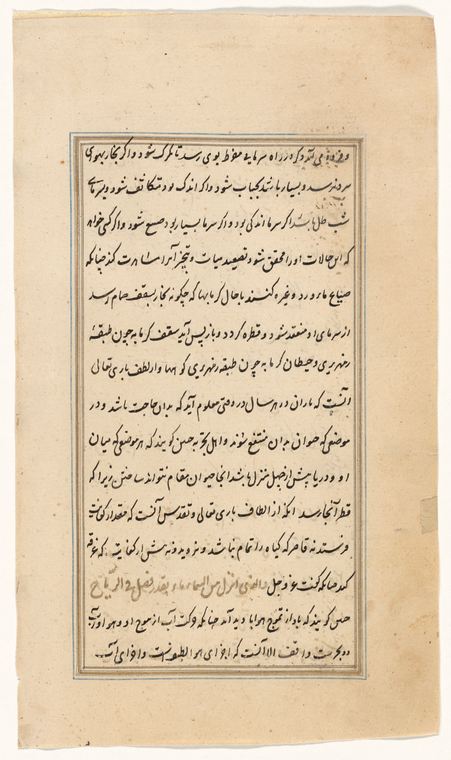 و فرود می آید و اگر در راه سرمایی مفرط بوی رسد تگرک شود و اگر بخار بهوای
سرد نرسد و بسیار باشد سحاب شود و اگر اندک بود متکاثف شود و بسرمای
شب طل باشد اگر سرما اندکی بود و اگر سرما بسیار بود صقیع شود و اگر کسی خواهد
که این حالات او را محقق شود تصعید میاه و تبخیر آنرا مشاهدت کند چنانکه
صناع ماء ورد و غیره کنند یا حال گرمابها که چگونه بخار بسقف حمام رسد
از سرمای او منعقد شود و قطره گردد و باز پس آید سقف گرمابه چون طبقهٔ
زمهریری و حیطان گرمابه چون طبقه زمهریری کوهها و از لطف باری تعالی
آنست که باران در هر سال در وقتی معلوم آید که بدان حاجت باشد و در
موضعی که حیوان بدان منتفع شوند و اهل تجربه چنین کویند که هر موضعی که میان
او و دریا بیش از چهل منزل باشد آنجا حیوان مقام نتواند ساختن زیرا که
قطر آنجا رسد آنکه از الطاف باری تعالی و تقدس آنست که مقدار کفایت
فرستد نه قاصر که کیاه را تمام نباشد و نروید و نه بیش از کفایت که غرقه
کند چنانکه گفت عز و جل والذی انزل من السماء ماء بقدر فصل فی الریاح
چنین کویند که باد از تموج هوا پدید آمد چنانکه حرکت آب از موج او و هوا و آب
دو بحرست واقف الا آنست که اجزای هوا لطیفست و اجزای آب